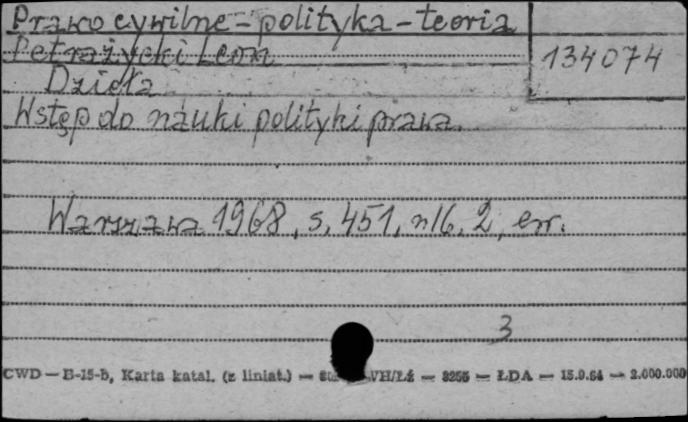 Prawo cywilne - polityka - teoria
Petrażycki Leon
134074
Dzieła
Wstęp do nauki polityki prawa.
Warszawa 1968, s. 451, nlb. 2, err.
3
CWD — B-15-b, Karta katal. (z liniat.) — VH/Łź — 8255 — ŁDA — 15.9.64 — 2.000.000